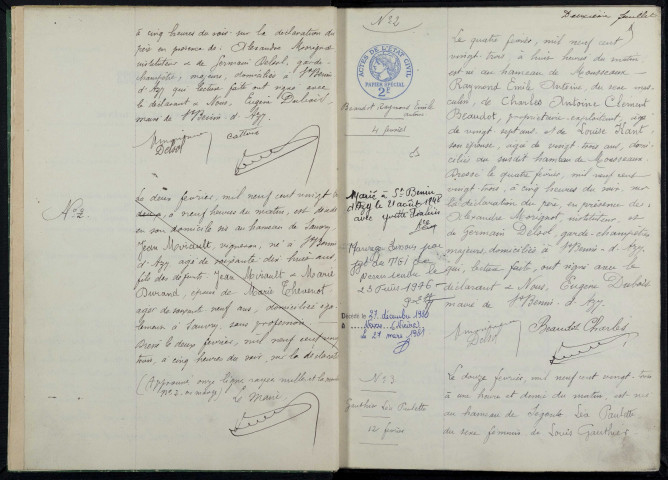 à cinq heures du soir sur la déclaration du
père en présence de Alexandre Morignot
instituteur & de Germain Delsol, garde-
champêtre, majeurs, domiciliés à St Benin
d'Azy qui lecture faite ont signé avec
le déclarant & Nous, Eugène Dubois
maire de St Benin d'Azy.
Morignot
Delsol
No 2
Le deux février, mil neuf cent vingt
à neuf heures du matin, est décédé
en son domicile sis au hameau de Sauvry,
Jean Mirault, vigneron, né à St Benin
d'Azy agé de soixante dix huit ans
fils des défunts Jean Mirault & Marie
Durand, époux de Marie Thevenot
agée de soixante neuf ans, domiciliés
à Sauvry, sans profession
Dressé le deux février, mil neuf cent vingt
trois, à cinq heures du soir, sur la déclarat
Le Maire
Dernier feuillet
No 2
ACTES DE L'ÉTAT CIVIL
PAPIER SPÉCIAL
2F
Beaudot Raymond Emile
Antoine
4 février
Marié à St Benin
d'Azy le 21 août 1948
avec Yvette
Mariage dissous par
Jgt du TGI
23 Juin 1976
Décédé le 27 décembre 1980
à Nevers (Nièvre)
Le quatre février, mil neuf cent
vingt-trois, à huit heures du matin
est né au hameau de Mousseaux
Raymond Emile Antoine, de sexe mas-
culin, de Charles Antoine Clement
Beaudot, propriétaire exploitant, agé
de vingt sept ans, et de Louise
son épouse, agée de vingt trois ans, domi-
ciliés au susdit hameau de Mousseaux.
Dressé le quatre février, mil neuf cent
vingt-trois, à cinq heures du soir sur
la déclaration du père, en présence de
Alexandre Morignot instituteur, et
de Germain Delsol, garde-champêtre
majeurs, domiciliés à St Benin-d'Azy
qui, lecture faite, ont signé avec le
déclarant & Nous, Eugène Dubois
maire de St Benin d'Azy.
Morignot
Delsol
Beaudot Charles
No 3
Gauthier Léa Paulette
12 février
Le douze février, mil neuf cent vingt-trois
à une heure et demi du matin, est née
au hameau de Léa Paulette
du sexe féminin de Louis Gauthier